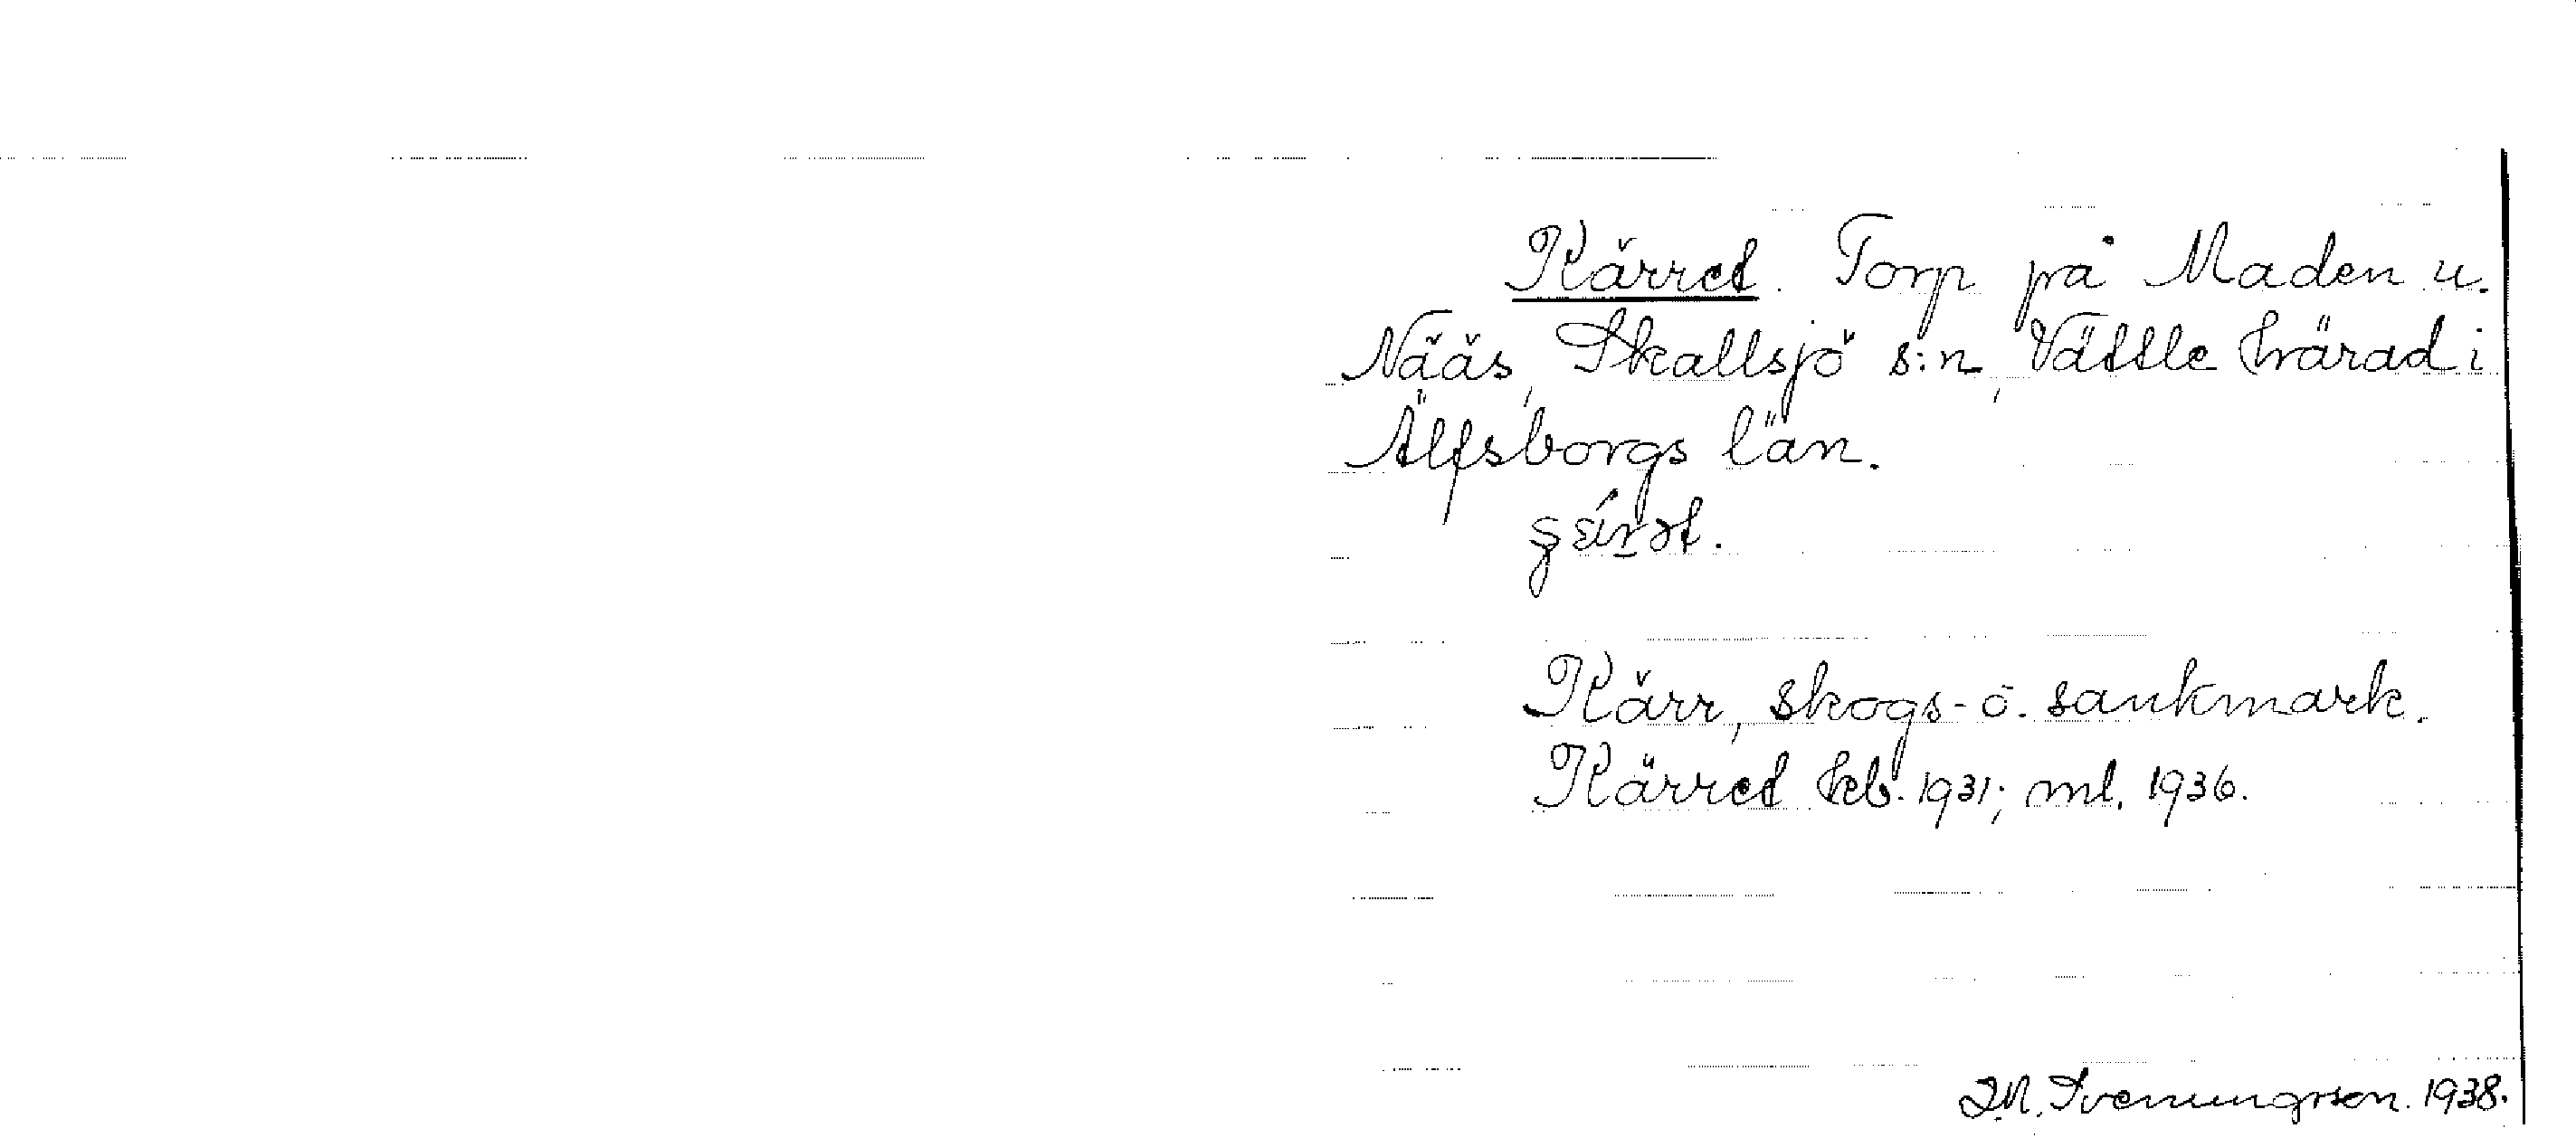 Kärret. Torp på Maden u.
Nääs, Skallsjö s:n, Vättle härad i
Älfsborgs län.
Kärr, skogs- o. sankmark.
Kärret kb. 1931; ml. 1936.
Svenungsson. 1938.